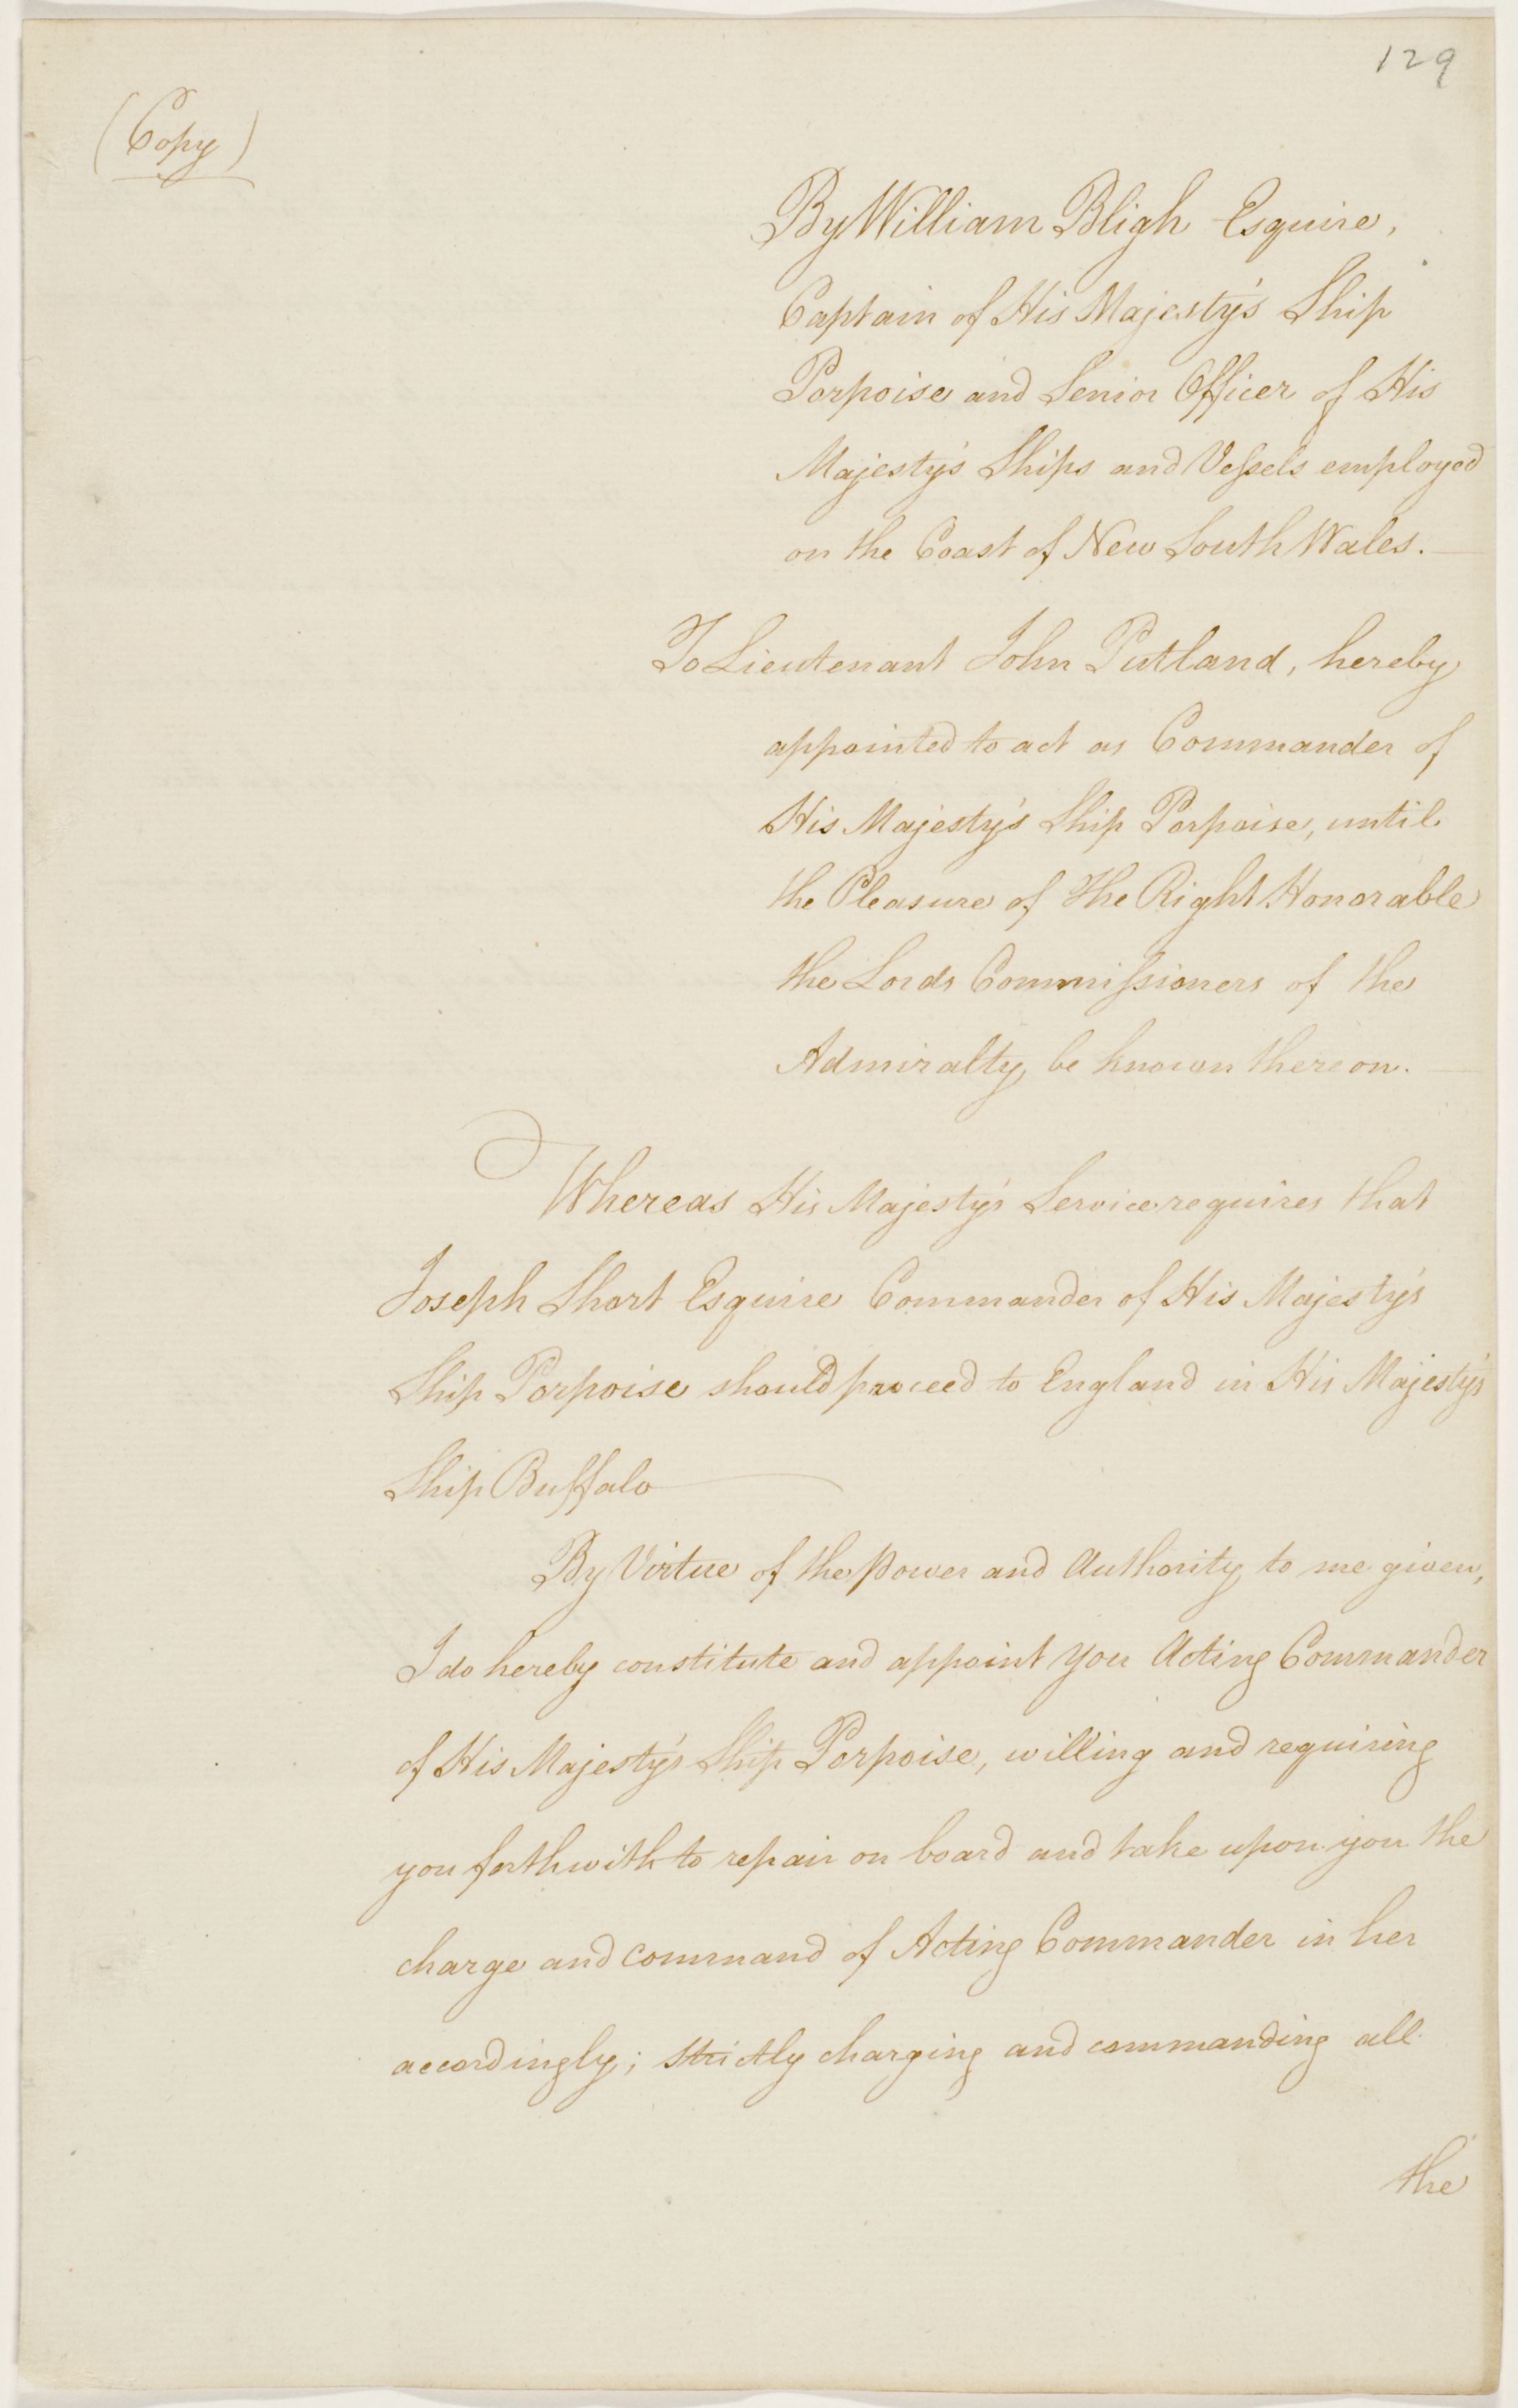 129
(Copy)
By William Bligh Esquire,
Captain of His Majesty's Ship
Porpoise and Senior Officer of His
Majesty's Ships and Veſsels employed
on the Coast of New South Wales.
To Lieutenant John Putland, hereby
appointed to act as Commander of
His Majesty's Ship Porpoise, until
the Pleasure of The Right Honorable
the Lords Commiſsioners of the
Admiralty be known thereon.
Whereas His Majesty's Service requires that
Joseph Short Esquire Commander of His Majesty's
Ship Porpoise should proceed to England in His Majesty's
Ship Buffalo
By Virtue of the Power and Authority to me given,
I do hereby constitute and appoint you Acting Commander
of His Majesty's Ship Porpoise, willing and requiring
you forthwith to repair on board and take upon you the
charge and command of Acting Commander in her
accordingly; strictly charging and commanding all
the